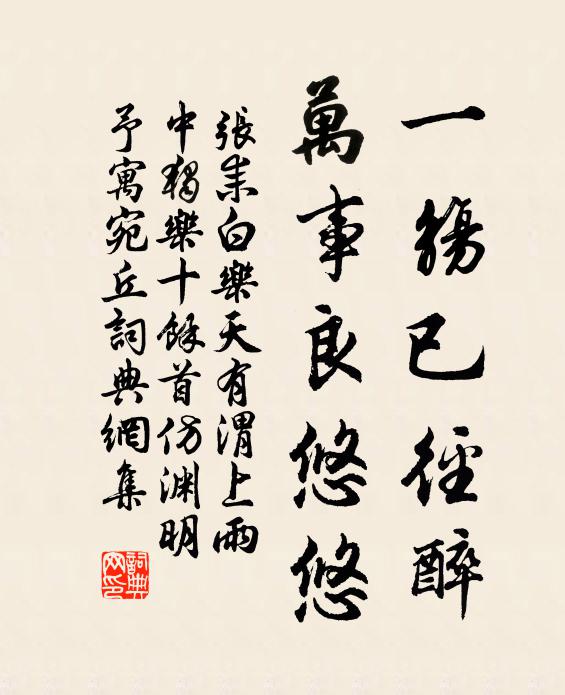 一觴已徑醉
萬事良悠悠
張耒白樂天有渭上雨
中獨樂十餘首仿淵明
予寓宛丘詞典網集
詞典網印